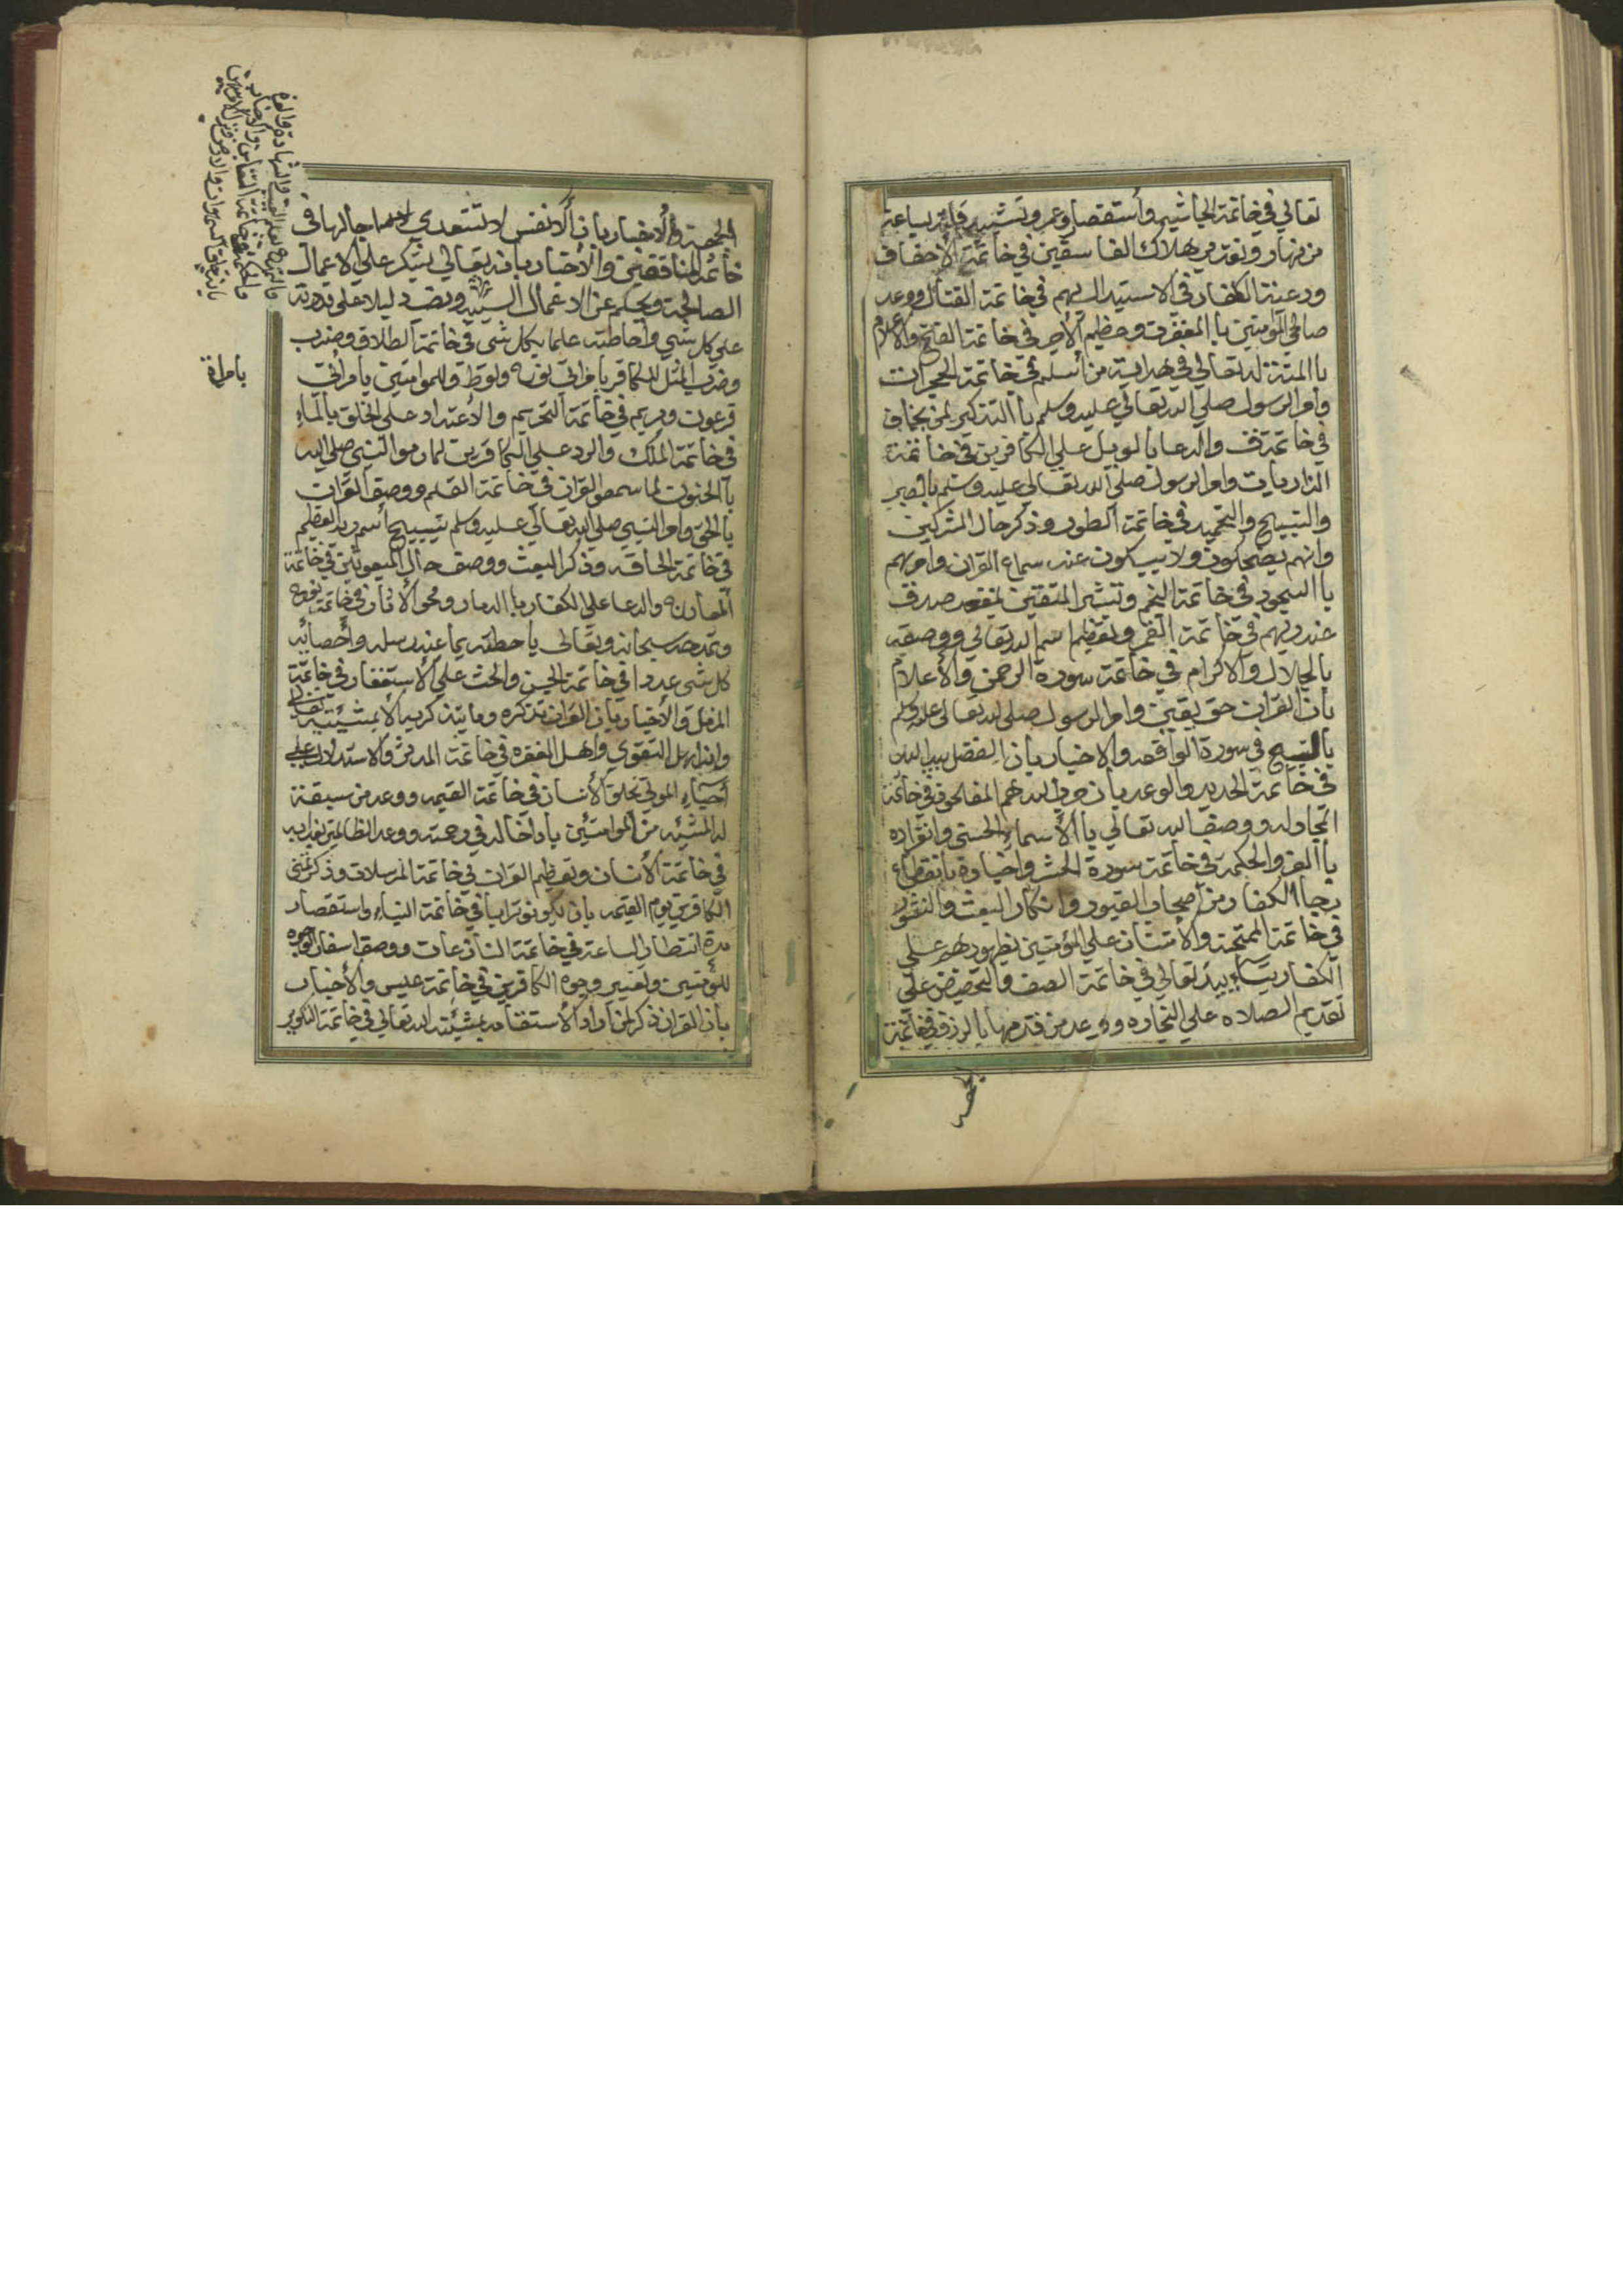 تعالي في خاتمة الجاثيه وأستقصار عمر وتشبيهه بساعة
من نهار ونعته من هلاك الفاسقين في خاتمة الأحقاف
ودعنة الكفار في الاستبدال بهم في خاتمة القتال ووعد
صالحي المؤمنين بالمغفرت وعظيم الأجر في خاتمة الفتح والأعلام
باالمنة لله تعالي في هداية من أسلم في خاتمة الحجرات
وأمر الرسول صلي الله تعالي عليه وسلم باالتذكير لمن يخاف
في خاتمة ق والدعا بالويل علي الكافرين في خاتمة
الذاريات وامر الرسول صلي الله تعالي عليه وسلم بالصبر
والتسبيح والتحميد في خاتمة الطور وذكر حال المشركين
وانهم يضحكون ولا يبكون عند سماع القران وامرهم
باالسجود في خاتمة النجم وتبشر المتقين بمقعد صدق
عند ربهم في خاتمة القمر وتعظيم اسم الله تعالي ووصفه
بالجلال والاكرام في خاتمة سورة الرحمن والأعلام
بأن القران حق يقين وامر الرسول صلى الله تعالى عليه وسلم
بالتسبيح في سورة الواقعه والاخبار بان الفضل بيد الله
في خاتمة الحديد والوعد بأن حزب الله هم المفلحون في خاتمة
المجادله ووصف الله تعالي باالأسماء الحسني وانفراده
باالعز والحكمة في خاتمة سورة الحشر واخباره بانقطاع
رجاا الكفار من أصحاب القبور وانكار البعث والنشور
في خاتمة الممتحنة والأمتنان علي المؤمنين بظهورهم علي
الكفار بتأييد تعالي في خاتمة الصف والتحضيض علي
تقديم الصلاه علي التجاره ووعد من قدمها بالرزق في خاتمة
الجمعة والاخبار بان ألانفس لا تتعدي اجالها في
خاتمة المناققين والأخبار بانه تعالي يشكر علي الاعمال
الصالحة ويحلم عن الاعمال السيئه دليلا على قدرته
علي كل شي واحاطته علما بكل شي في خاتمة الطلاق وضرب
وضرب المثل للكافر بامراتي نوح ولوط وللموامنين بامراتي
فرعون ومريم في خاتمة التحريم والأعتداد علي الخلق بالماء
في خاتمة الملك والرد علي الكافرين لما رموا النبي صلي الله
باالجنون لما سمعوا القران في خاتمة القلم ووصف القران
باالحق وامر النبي صلي الله تعالي عليه وسلم بتسبيح أسم ربه العظيم
في خاتمة الحاقه وذكر البعث ووصف حال المبعوثين في خاتمة
المعارج والدعا علي الكفار باالدمار ومحو الأثار في خاتمة نوح
وتمدحه سبحانه وتعالى باحطته بما عند رسله وأحصائه
كل شي عددا في خاتمة الجن والحث علي الأستغفار في خاتمة
المزمل والأخبار بان القران تذكره وما يتذكر به ألا بمشيئته تعالي
وانه اهل التقوي واهل المغفره في خاتمة المدثر والاستدلال علي
أحياء الموتي بخلق الأنسان في خاتمة القيمه ووعد من سبقة
له المشئه من الموامنين بادخاله في رحمته ووعد الظالمين بعذابه
في خاتمة الأنسان وتعظيم القران في خاتمة المرسلات وذكر تمني
الكافرين يوم القيمه بان يكونو ترابا في خاتمة النباء واستقصار
مدة انتظار الساعة في خاتمة النازعات ووصف اسفار الوجوه
للمؤمنين وتغيير وجوه الكافرين في خاتمة عبس والأخبار
بأن القران ذكر لمن أراد الأستقامه بمشئة الله تعالي في خاتمة التكوير
بامراة